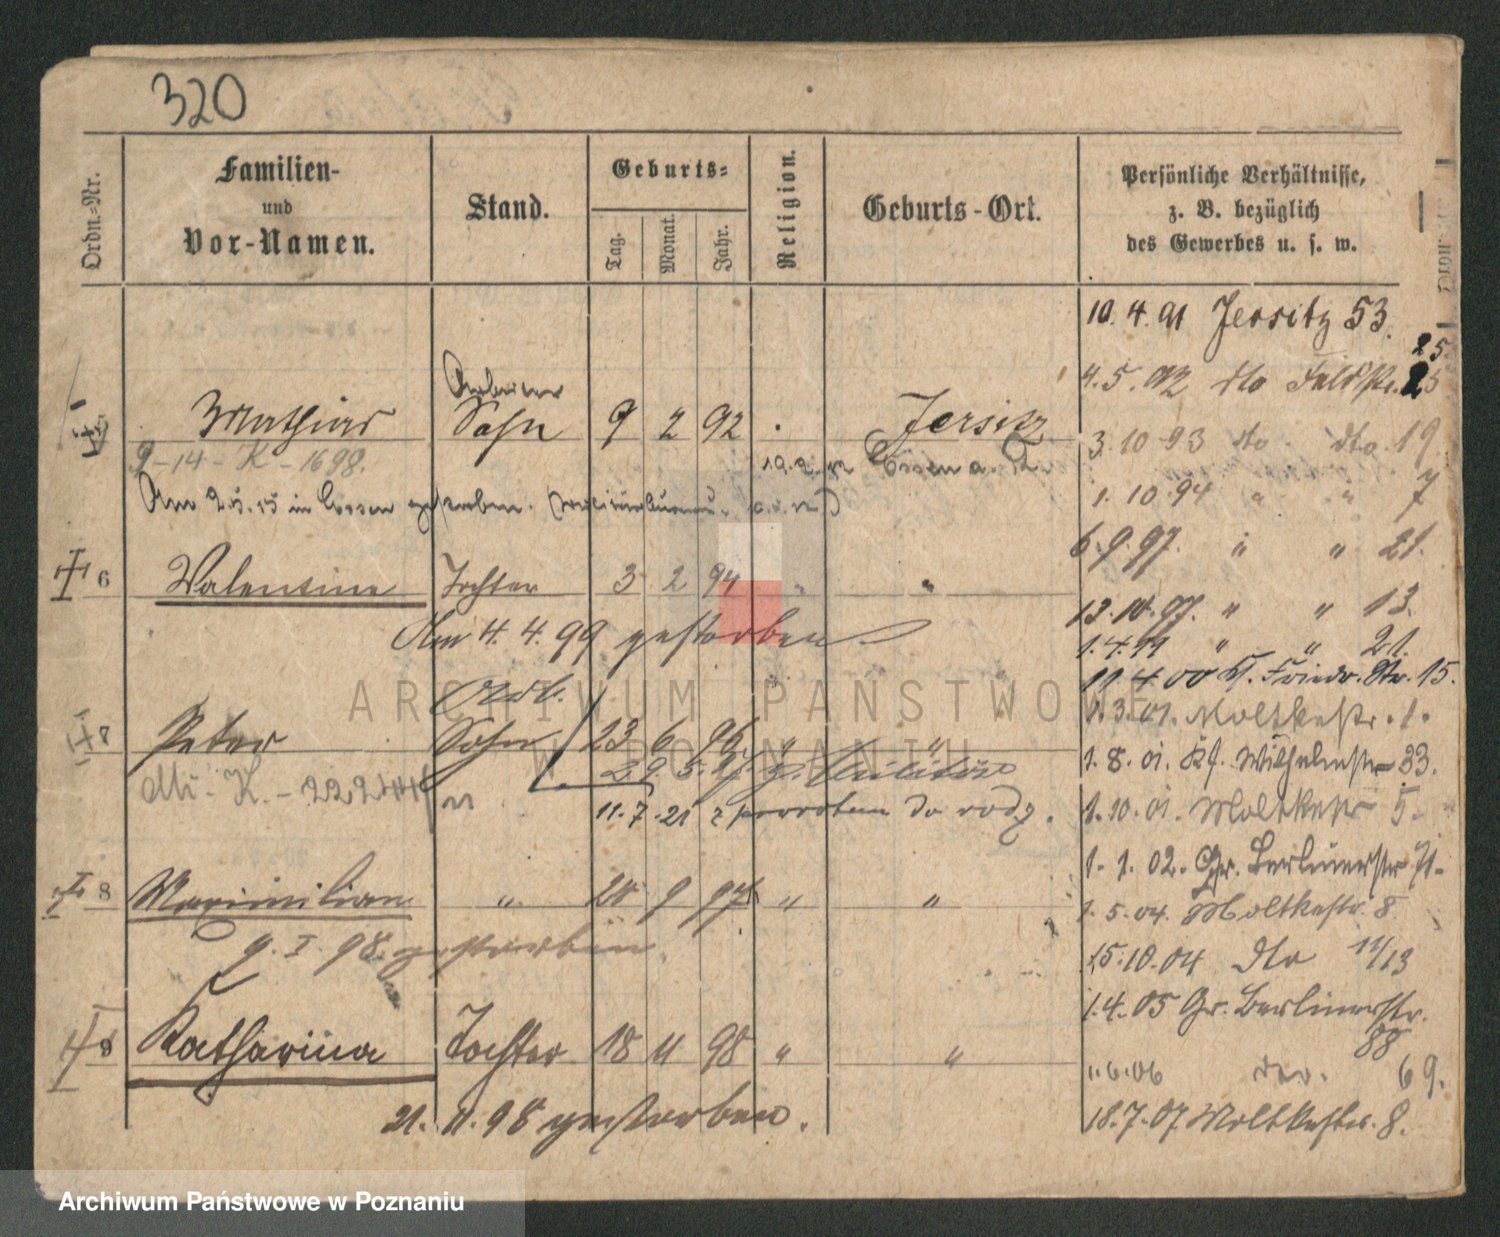 320
Ordn.=Nr.
Familien-
und
Vor-Namen.
Stand.
Geburts=
Tag.
Monat.
Jahr.
Religion.
Geburts-Ort.
Persönliche Verhältnisse,
z. B. bezüglich
des Gewerbes u. s. w.
10. 4. 91 Jersitz 53.
25
4. 5. 92 dto Feldstr. 25
Mathias Sohn 9 2 92 Jersitz
3. 10 93 dto dto 19
9-14-K-1698.
19.2. Essen a. R.
1. 10 94 " " 7
Am 2.5.15 in Essen gestorben.
6. 9. 97. " " 21.
6 Valentine Tochter 3 2 94 " "
13. 10. 97. " " 13.
Am 4. 4. 99 gestorben
1. 4. 99 " " 21.
19 4 00 Kl. Friedr. Str. 15.
1. 3. 01. Moltkestr. 1.
7 Peter Sohn 23 6 96 " "
1. 8. 01. Kg. Wilhelmstr 33.
29. 5. z. Militär
K. - 222441
11. 7. 21 z powrotem do rodz.
1. 10. 01. Moltkestr 5.
1. 1. 02. Gr. Berlinerstr 71.
8 Maximilian " 28 9 97 " "
1. 5. 04. Moltkestr. 8
9. I. 98. gestorben.
15. 10. 04 dto 11/13
1. 4. 05 Gr. Berlinerstr.
88
9 Katharina Tochter 18 11 98 " "
69.
21. 11. 98 gestorben.
18. 7. 07 Moltkestr. 8.
ARCHIWUM PAŃSTWOWE
W POZNANIU
Archiwum Państwowe w Poznaniu